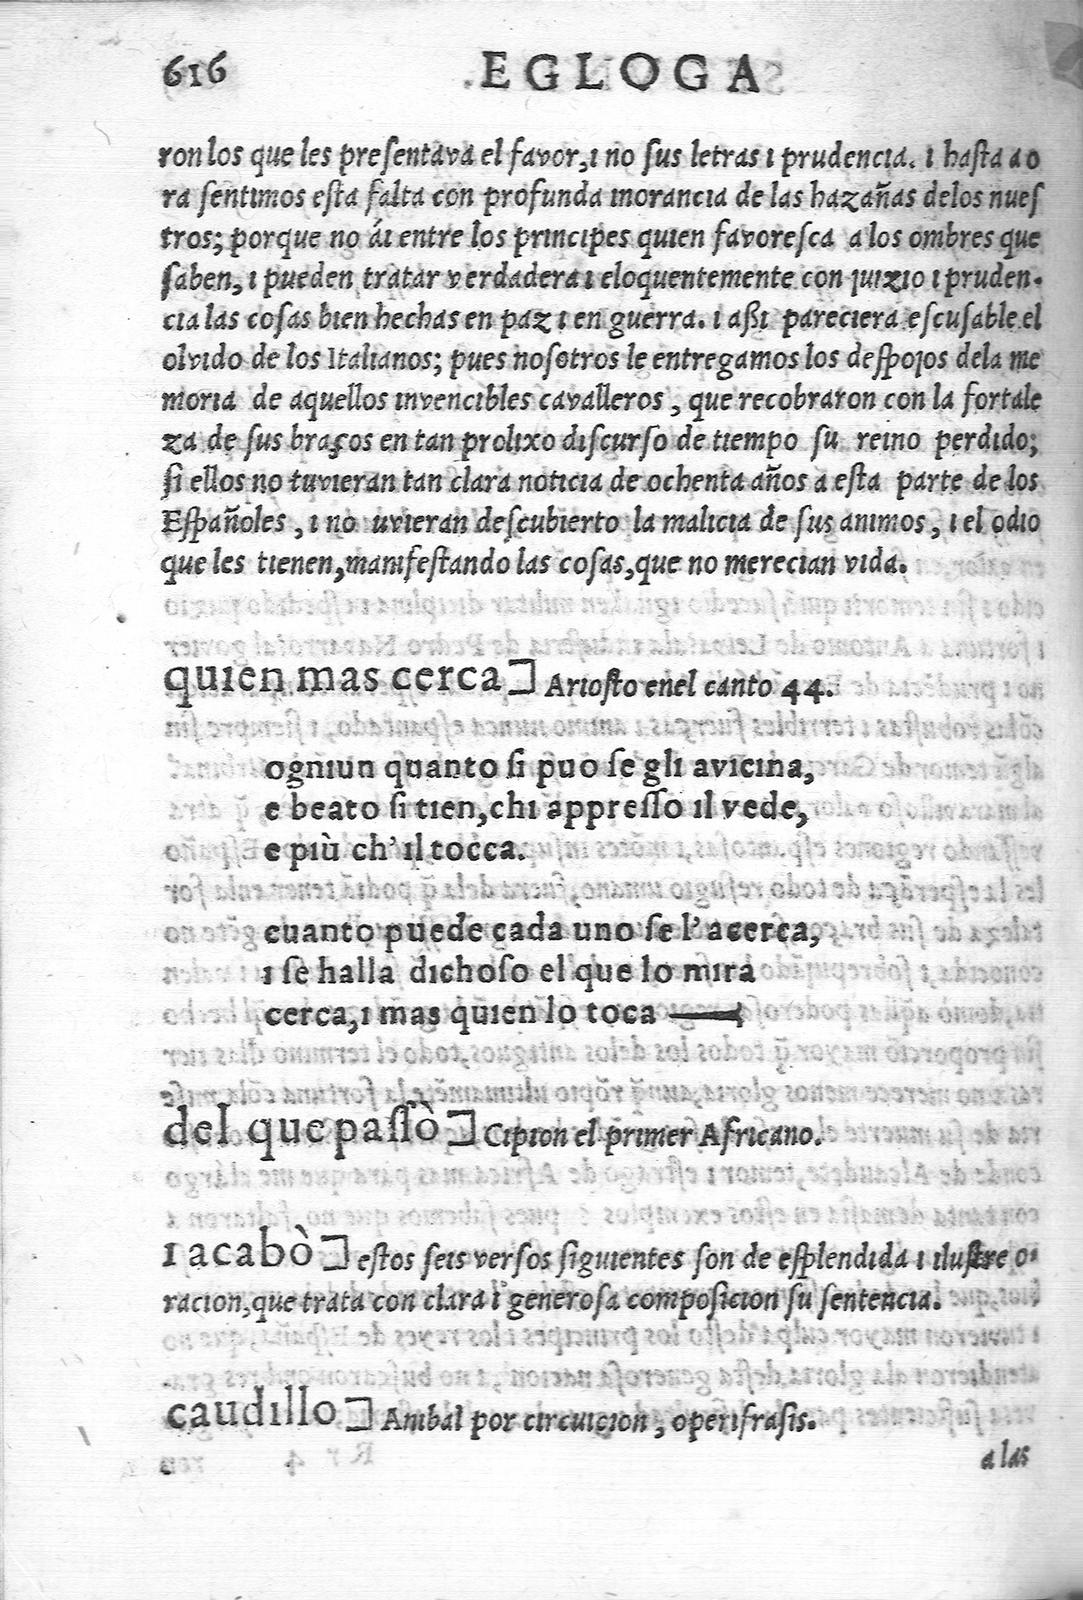 616 EGLOGA
ron los que les preſentava el favor, ı no ſus letras ı prudencıa. ı haſta ao
ra ſentımos eſta falta con profunda ınorancıa de las hazañas delos nueſ
tros; porque no áı entre los prıncıpes quıen favoreſca a los ombres que
ſaben, ı pueden tratar verdadera ı eloquentemente con ȷuızıo ı pruden-
cıa las coſas bıen hechas en paz ı en guerra. ı aßı parecıera eſcuſable el
olvıdo de los Italıanos; pues noſotros le entregamos los deſpoȷos dela me
morıa de aquellos ınvencıbles cavalleros, que recobraron con la fortale
za de ſus braços en tan prolıxo dıſcurſo de tıempo ſu reıno perdıdo;
ſı ellos no tuvıeran tan clara notıcıa de ochenta años a eſta parte de los
Eſpañoles, ı no uvıeran deſcubıerto la malıcıa de ſus anımos, ı el odıo
que les tıenen, manıfeſtando las coſas, que no merecıan vıda.
quıen mas cerca] Arıoſto enel canto 44.
ognıun quanto ſı puo ſe glı avıcına,
e beato ſı tıen, chı appreſſo ıl vede,
e pıù ch' ıl tocca.
cuanto puede cada uno ſe l' acerca,
ı ſe halla dıchoſo el que lo mıra
cerca, ı mas quıen lo toca
del que paſſò] Cıpıon el prımer Afrıcano.
ı acabò] eſtos ſeıs verſos ſıguıentes ſon de eſplendıda ı ıluſtre o-
racıon, que trata con clara ı generoſa compoſıcıon ſu ſentencıa.
caudıllo] Anıbal por cırcuıcıon, o perıfraſıs.
a las